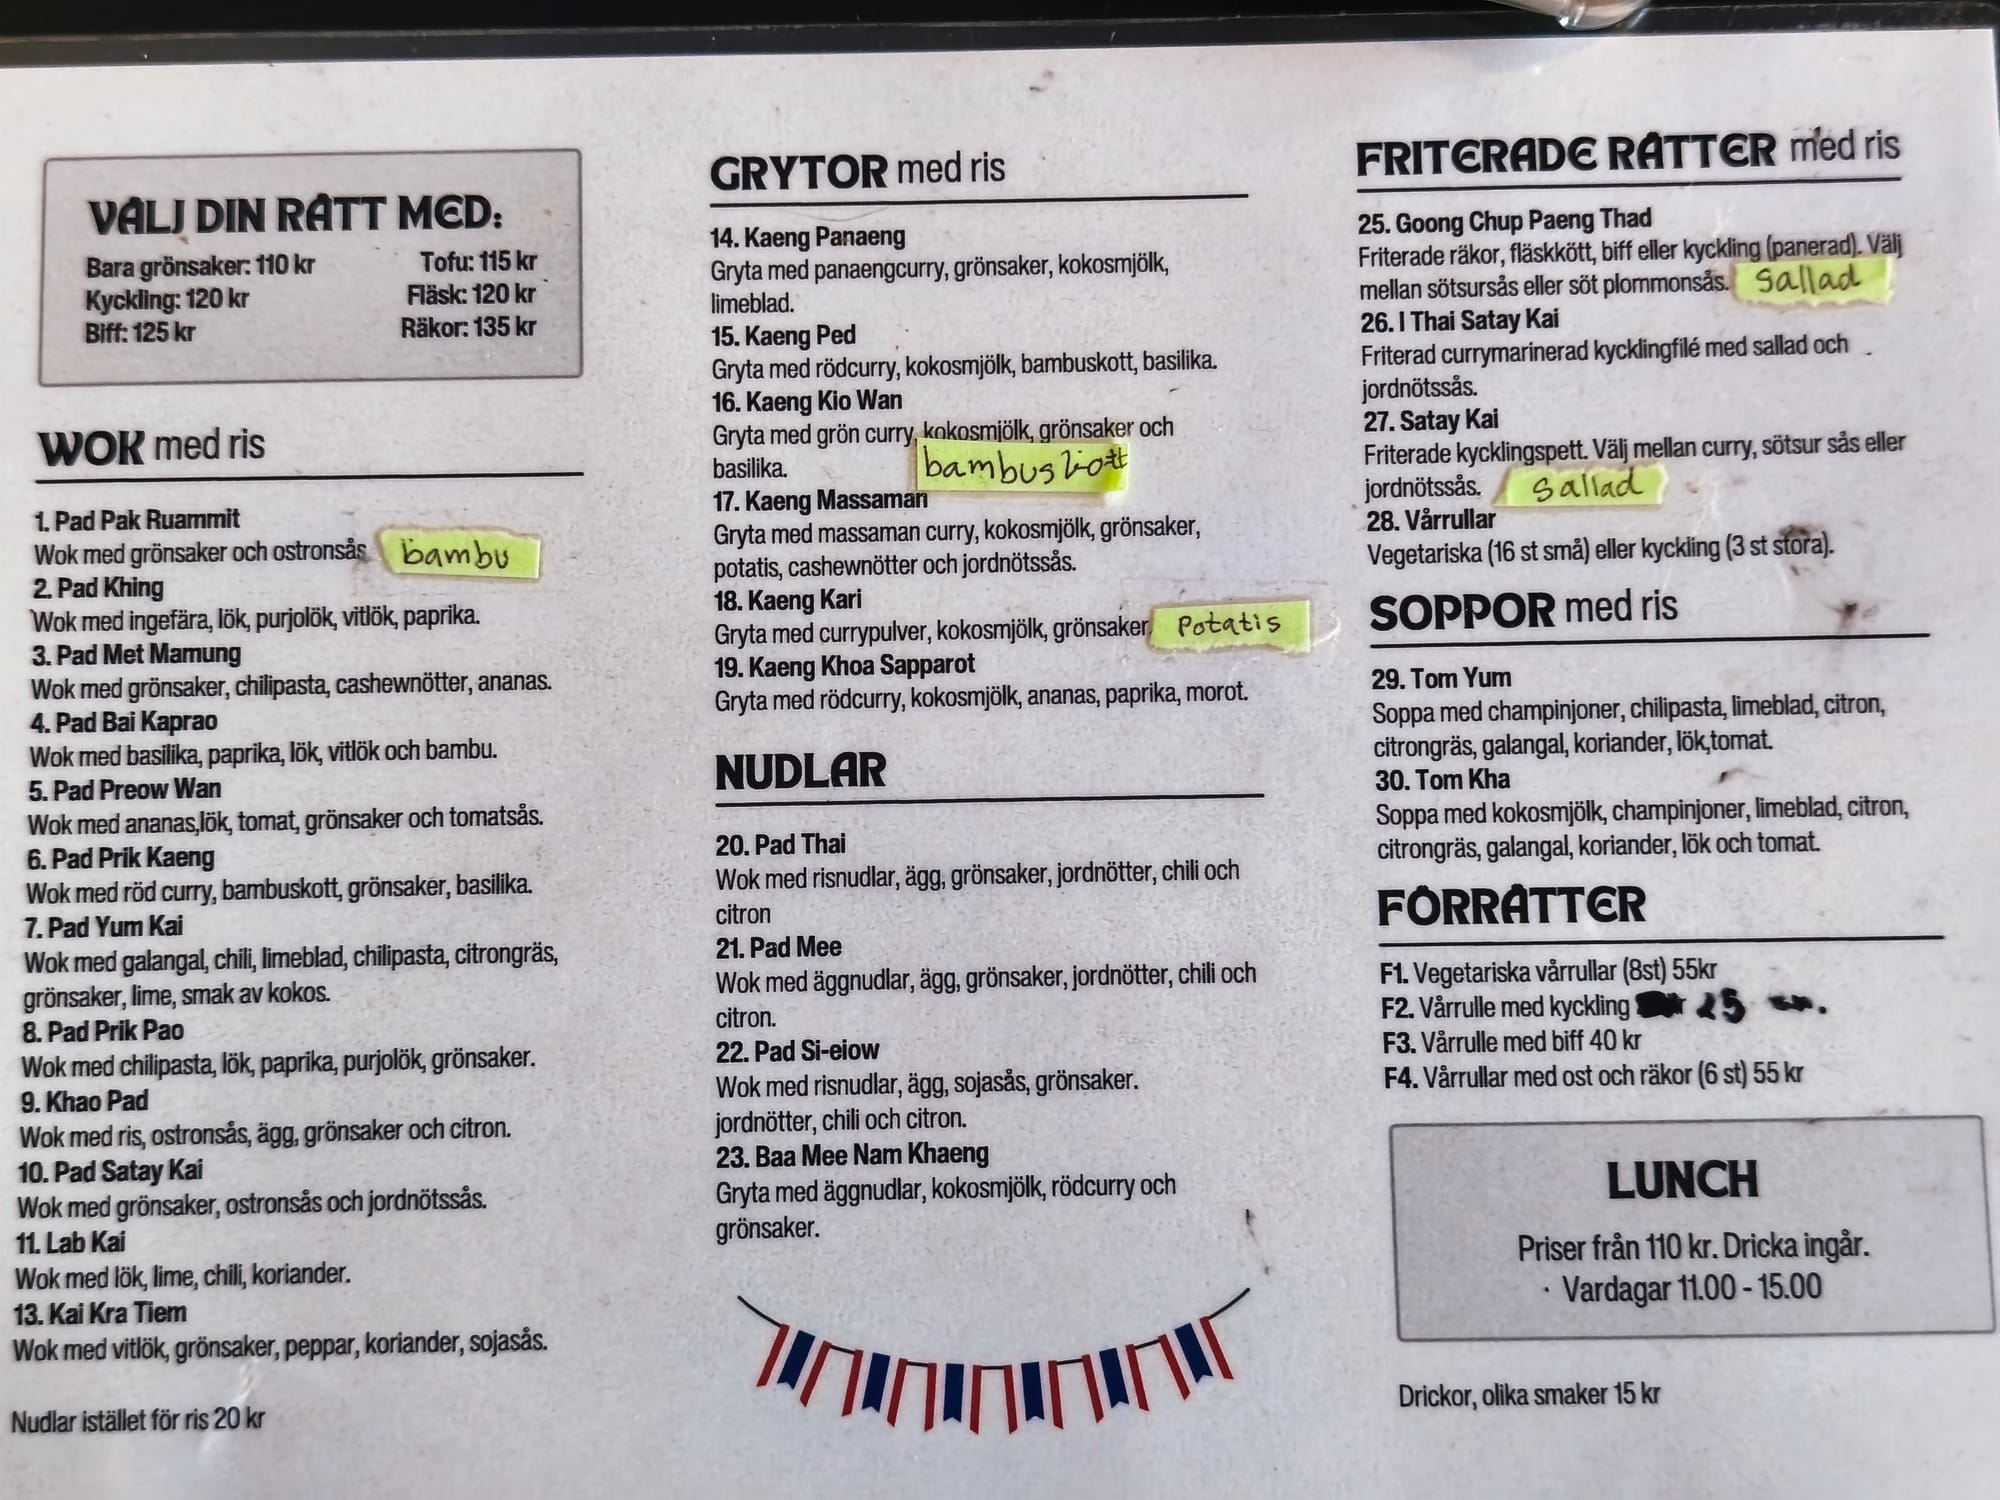 VÄLJ DIN RÄTT MED:
Bara grönsaker: 110 kr Tofu: 115 kr
Kyckling: 120 kr Fläsk: 120 kr
Biff: 125 kr Räkor: 135 kr
WOK med ris
1. Pad Pak Ruammit
Wok med grönsaker och ostronsås bambu
2. Pad Khing
Wok med ingefära, lök, purjolök, vitlök, paprika.
3. Pad Met Mamung
Wok med grönsaker, chilipasta, cashewnötter, ananas.
4. Pad Bai Kaprao
Wok med basilika, paprika, lök, vitlök och bambu.
5. Pad Preow Wan
Wok med ananas,lök, tomat, grönsaker och tomatsås.
6. Pad Prik Kaeng
Wok med röd curry, bambuskott, grönsaker, basilika.
7. Pad Yum Kai
Wok med galangal, chili, limeblad, chilipasta, citrongräs,
grönsaker, lime, smak av kokos.
8. Pad Prik Pao
Wok med chilipasta, lök, paprika, purjolök, grönsaker.
9. Khao Pad
Wok med ris, ostronsås, ägg, grönsaker och citron.
10. Pad Satay Kai
Wok med grönsaker, ostronsås och jordnötssås.
11. Lab Kai
Wok med lök, lime, chili, koriander.
13. Kai Kra Tiem
Wok med vitlök, grönsaker, peppar, koriander, sojasås.
Nudlar istället för ris 20 kr
GRYTOR med ris
14. Kaeng Panaeng
Gryta med panaengcurry, grönsaker, kokosmjölk,
limeblad.
15. Kaeng Ped
Gryta med rödcurry, kokosmjölk, bambuskott, basilika.
16. Kaeng Kio Wan
Gryta med grön curry, kokosmjölk, grönsaker och
basilika. bambuskott
17. Kaeng Massaman
Gryta med massaman curry, kokosmjölk, grönsaker,
potatis, cashewnötter och jordnötssås.
18. Kaeng Kari
Gryta med currypulver, kokosmjölk, grönsaker, Potatis
19. Kaeng Khoa Sapparot
Gryta med rödcurry, kokosmjölk, ananas, paprika, morot.
NUDLAR
20. Pad Thai
Wok med risnudlar, ägg, grönsaker, jordnötter, chili och
citron
21. Pad Mee
Wok med äggnudlar, ägg, grönsaker, jordnötter, chili och
citron.
22. Pad Si-eiow
Wok med risnudlar, ägg, sojasås, grönsaker.
jordnötter, chili och citron.
23. Baa Mee Nam Khaeng
Gryta med äggnudlar, kokosmjölk, rödcurry och
grönsaker.
FRITERADE RÄTTER med ris
25. Goong Chup Paeng Thad
Friterade räkor, fläskkött, biff eller kyckling (panerad). Välj
mellan sötsursås eller söt plommonsås. Sallad
26. I Thai Satay Kai
Friterad currymarinerad kycklingfilé med sallad och
jordnötssås.
27. Satay Kai
Friterade kycklingspett. Välj mellan curry, sötsur sås eller
jordnötssås. Sallad
28. Vårrullar
Vegetariska (16 st små) eller kyckling (3 st stora).
SOPPOR med ris
29. Tom Yum
Soppa med champinjoner, chilipasta, limeblad, citron,
citrongräs, galangal, koriander, lök,tomat.
30. Tom Kha
Soppa med kokosmjölk, champinjoner, limeblad, citron,
citrongräs, galangal, koriander, lök och tomat.
FÖRRÄTTER
F1. Vegetariska vårrullar (8st) 55kr
F2. Vårrulle med kyckling 25
F3. Vårrulle med biff 40 kr
F4. Vårrullar med ost och räkor (6 st) 55 kr
LUNCH
Priser från 110 kr. Dricka ingår.
Vardagar 11.00 - 15.00
Drickor, olika smaker 15 kr